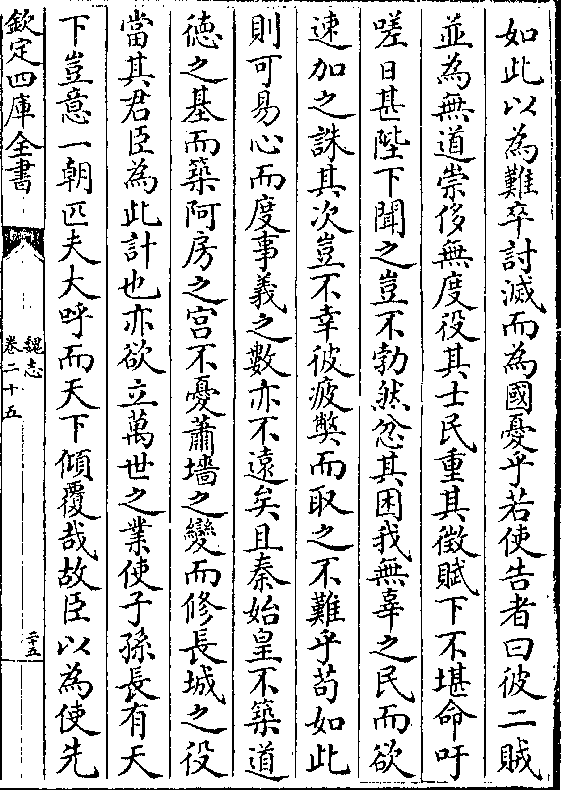 如此以為難卒討滅而為國憂乎若使告者曰彼二賊
並為無道崇侈無度役其士民重其徵賦下不堪命吁
嗟日甚陛下聞之豈不勃然忿其困我無辜之民而欲
速加之誅其次豈不幸彼疲獘而取之不難乎苟如此
則可易心而度事義之數亦不遠矣且秦始皇不築道
徳之基而築阿房之宮不憂蕭墻之變而修長城之役
當其君臣為此計也亦欲立萬世之業使子孫長有天
下豈意一朝匹夫大呼而天下傾覆哉故臣以為使先
欽定四庫全書
魏志
卷二十五
二十五